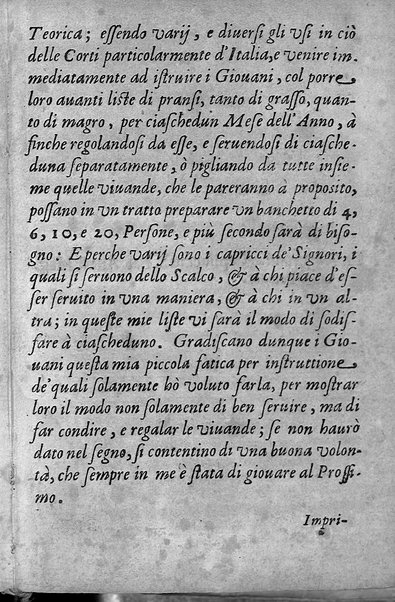 Teorica; essendo varij, e diuersi gli vsi in ciò
delle Corti particolarmente d'Italia, e venire im-
mediatamente ad istruire i Giouani, col porre
loro auanti liste di pransi, tanto di grasso, quan-
to di magro, per ciaschedun Mese dell'Anno, à
finche regolandosi da esse, e seruendosi di ciasche-
duna separatamente, ò pigliando da tutte insie-
me quelle viuande, che le pareranno à proposito,
possano in vn tratto preparare vn banchetto di 4,
6, 10, e 20, Persone, e più secondo sarà di biso-
gno: E perche varij sono i capricci de' Signori, i
quali si seruono dello Scalco, & à chi piace d'es-
ser seruito in vna maniera, & à chi in vn al-
tra; in queste mie liste vi sarà il modo di sodis-
fare à ciascheduno. Gradiscano dunque i Gio-
uani questa mia piccola fatica per instruttione
de' quali solamente hò voluto farla, per mostrar
loro il modo non solamente di ben seruire, ma di
far condire, e regalar le viuande; se non haurò
dato nel segno, si contentino di vna buona volon-
tà, che sempre in me è stata di giouare al Prossi-
mo.
Impri-